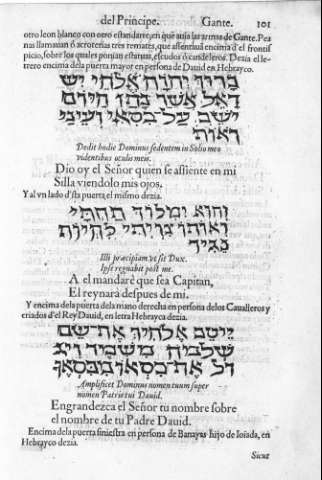 del Principe. Gante. 101
otro leon blanco con otro estandarte, en que auia las armas de Gante. Pea
nas llamauan o acroterias tres remates, que assentauā encima d'el frontis
picio, sobre los quales ponian estatuas, escudos o candeleros. Dezia el le-
trero encima dela puerta mayor en persona de Dauid en Hebrayco.
ברוך יהוה אלהי יש
ראל אשר נתן היום
יושב על כסאי ועיני
ראות
Dedit hodie Dominus sedentem in Solio meo
videntibus oculis meis.
Dio oy el Señor quien se assiente en mi
Silla viendolo mis ojos.
Y al vn lado d'sta puerta, el mismo dezia.
והוא ימלוך תחתי
ואותו צויתי להיות
נגיד
Illi præcipiam vt sit Dux.
Ipse regnabit post me.
A el mandare que sea Capitan,
El reynará despues de mi.
Y encima dela puerta dela mano derecha en persona delos Caualleros y
criados d'el Rey Dauid, en letra Hebrayca dezia.
ייטב אלהיך את שם
שלמה משמיך ויג
דל את כסאו מכסאך
Amplificet Dominus nomen tuum super
nomen Patris tui Dauid.
Engrandezca el Señor tu nombre sobre
el nombre de tu Padre Dauid.
Encima dela puerta siniestra en persona de Banayas hijo de Ioiada, en
Hebrayco dezia.
Sicut